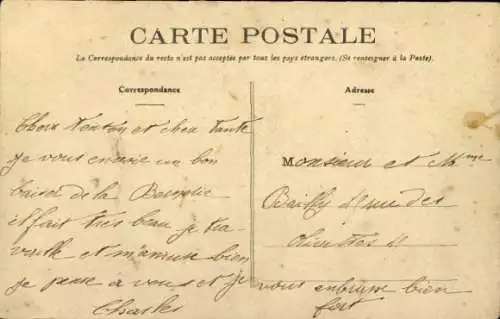 CARTE POSTALE
La Correspondance du recto n'est pas acceptée par tous les pays étrangers. (Se renseigner à la Poste).
Correspondance
Adresse
et cher tante
je vous envoie un bon
baiser de la
il fait très beau je tra-
vaille et m'amuse bien
je pense à vous et je
Charles
Monsieur et Mme
Bailly rue des
vous embrasse bien
fort